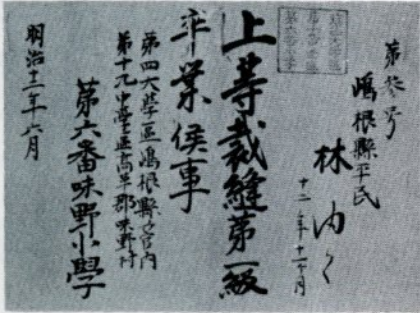 第参号
嶋根縣平民
林 内〻
十二年十一ヶ月
上等裁縫第一級
卒業候事
第四大學區嶋根縣之官内
第十九中學區高草郡味野村
第六番味野小學
明治十二年六月